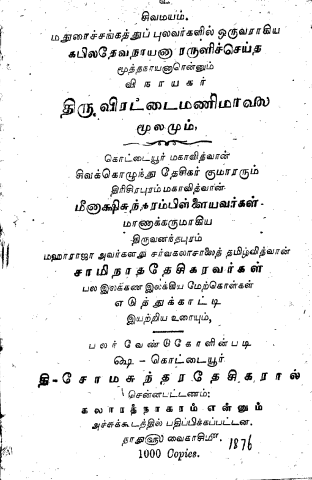 ௨
சிவமயம்.
மதுரைச்சங்கத்துப் புலவர்களில் ஒருவராகிய
கபிலதேவநாயனா ரருளிச்செய்த
மூத்தநாயனாரென்னும்
வி நா ய க ர்
திரு விரட்டைமணிமாலை
மூலமும்,
கொட்டையூர் மகாவித்வான்
சிவக்கொழுந்து தேசிகர் குமாரரும்
திரிசிரபுரம் மகாவித்வான்
மீனாக்ஷிசுந்தரம்பிள்ளையவர்கள்
மாணாக்கருமாகிய
திருவனந்தபுரம்
மஹாராஜா அவர்களது சர்வகலாசாலைத் தமிழ்வித்வான்
சாமிநாததேசிகரவர்கள்
பல இலக்கண இலக்கிய மேற்கோள்கள்
எ டு த் து க் கா ட் டி
இயற்றிய உரையும்,
ப ல ர் வே ண் டு கோ ளி ன் ப டி
௸ - கொட்டையூர்
தி-சோமசுந்தரதேசிகரால்
சென்னபட்டணம்:
க லா ர த் நா க ர ம் எ ன் னு ம்
அச்சுக்கூடத்தில் பதிப்பிக்கப்பட்டன.
வைகாசிமீ 1876
1000 Copies.